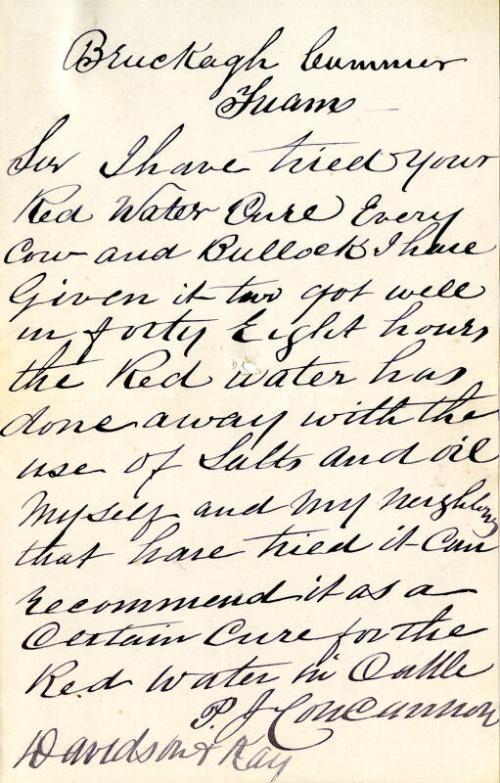 Bruckagh Cummer
Tuam
Sir I have tried your
Red Water Cure Every
Cow and Bullock I have
Given it two got well
in forty Eight hours
the Red water has
done away with the
use of Salts and oil
Myself and my neighbors
that have tried it Can
recommend it as a
Certain Cure for the
Red Water in Cattle
P. J Concannon
Davidson & Kay